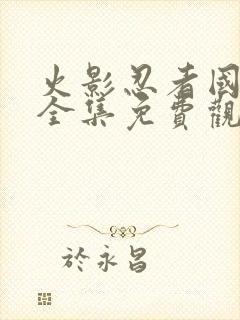 火影忍者國
全集免費觀
於永昌